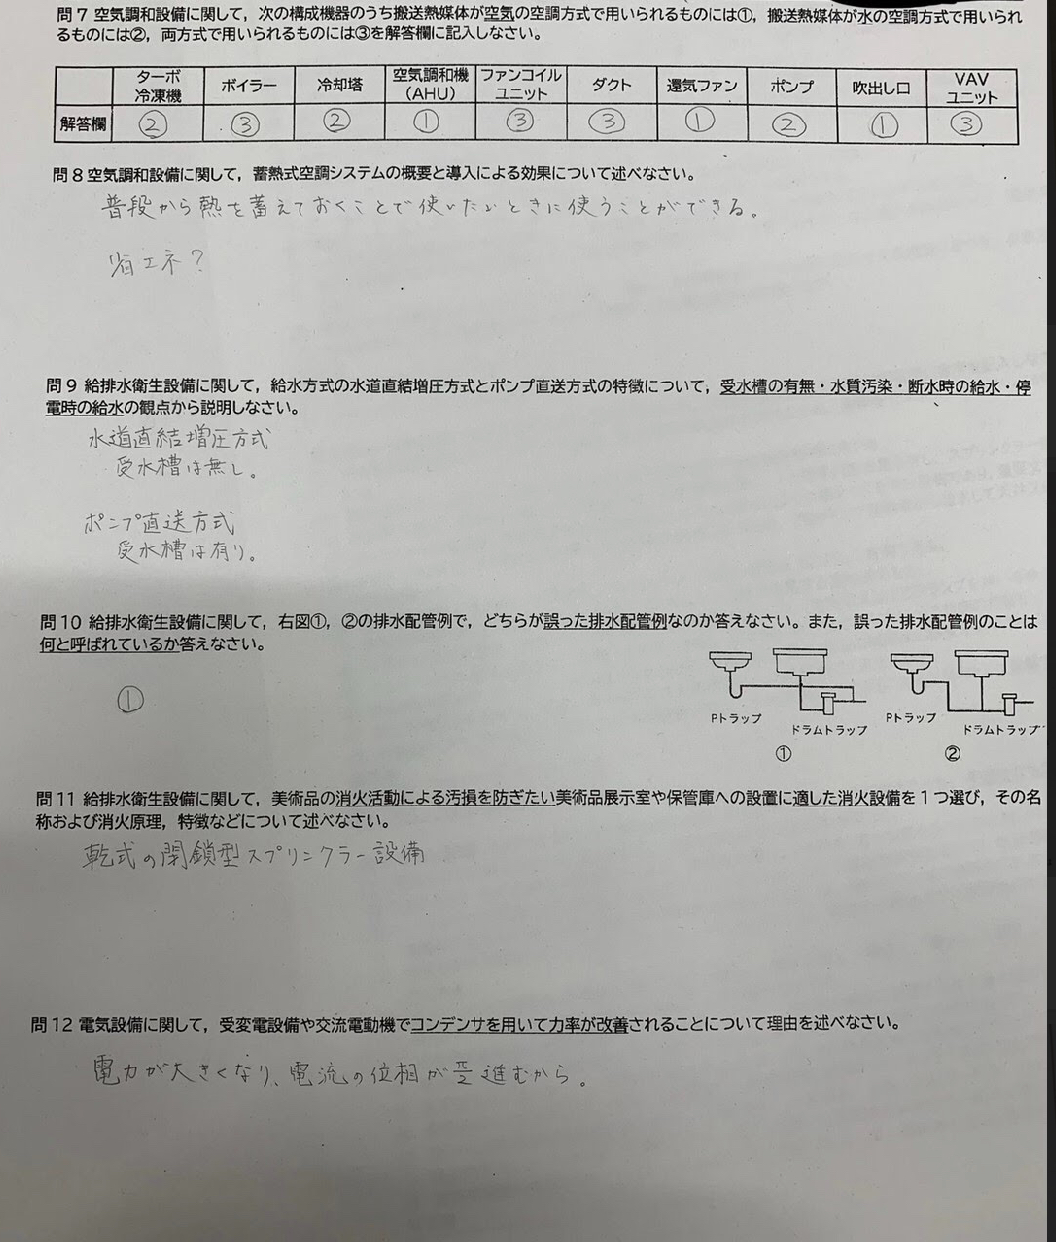 問7 空気調和設備に関して，次の構成機器のうち搬送熱媒体が空気の空調方式で用いられるものには①，搬送熱媒体が水の空調方式で用いられ
るものには②，両方式で用いられるものには③を解答欄に記入しなさい。
ターボ冷凍機 ボイラー 冷却塔 空気調和機（AHU） ファンコイルユニット ダクト 還気ファン ポンプ 吹出し口 VAVユニット
解答欄 ② ③ ② ① ③ ③ ① ② ① ③
問8 空気調和設備に関して，蓄熱式空調システムの概要と導入による効果について述べなさい。
普段から熱を蓄えておくことで使いたいときに使うことができる。
省エネ？
問9 給排水衛生設備に関して，給水方式の水道直結増圧方式とポンプ直送方式の特徴について，受水槽の有無・水質汚染・断水時の給水・停
電時の給水の観点から説明しなさい。
水道直結増圧方式
受水槽は無し。
ポンプ直送方式
受水槽は有り。
問10 給排水衛生設備に関して，右図①，②の排水配管例で，どちらが誤った排水配管例なのか答えなさい。また，誤った排水配管例のことは
何と呼ばれているか答えなさい。
①
Pトラップ
ドラムトラップ
①
Pトラップ
ドラムトラップ
②
問11 給排水衛生設備に関して，美術品の消火活動による汚損を防ぎたい美術品展示室や保管庫への設置に適した消火設備を1つ選び，その名
称および消火原理，特徴などについて述べなさい。
乾式の閉鎖型スプリンクラー設備
問12 電気設備に関して，受変電設備や交流電動機でコンデンサを用いて力率が改善されることについて理由を述べなさい。
電力が大きくなり、電流の位相が 進むから。